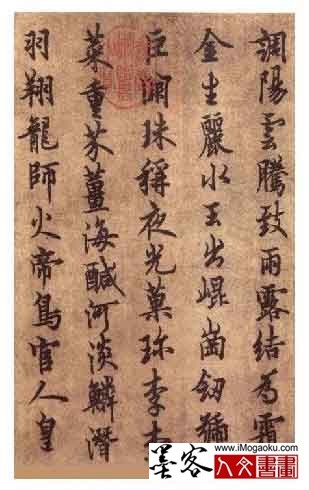 調陽雲騰致雨露結為霜
金生麗水玉出崐崗劒號
巨闕珠稱夜光菓珎李柰
菜重芥薑海醎河淡鱗潛
羽翔龍師火帝鳥官人皇
墨客
www.iMogaoku.com
人文書畫